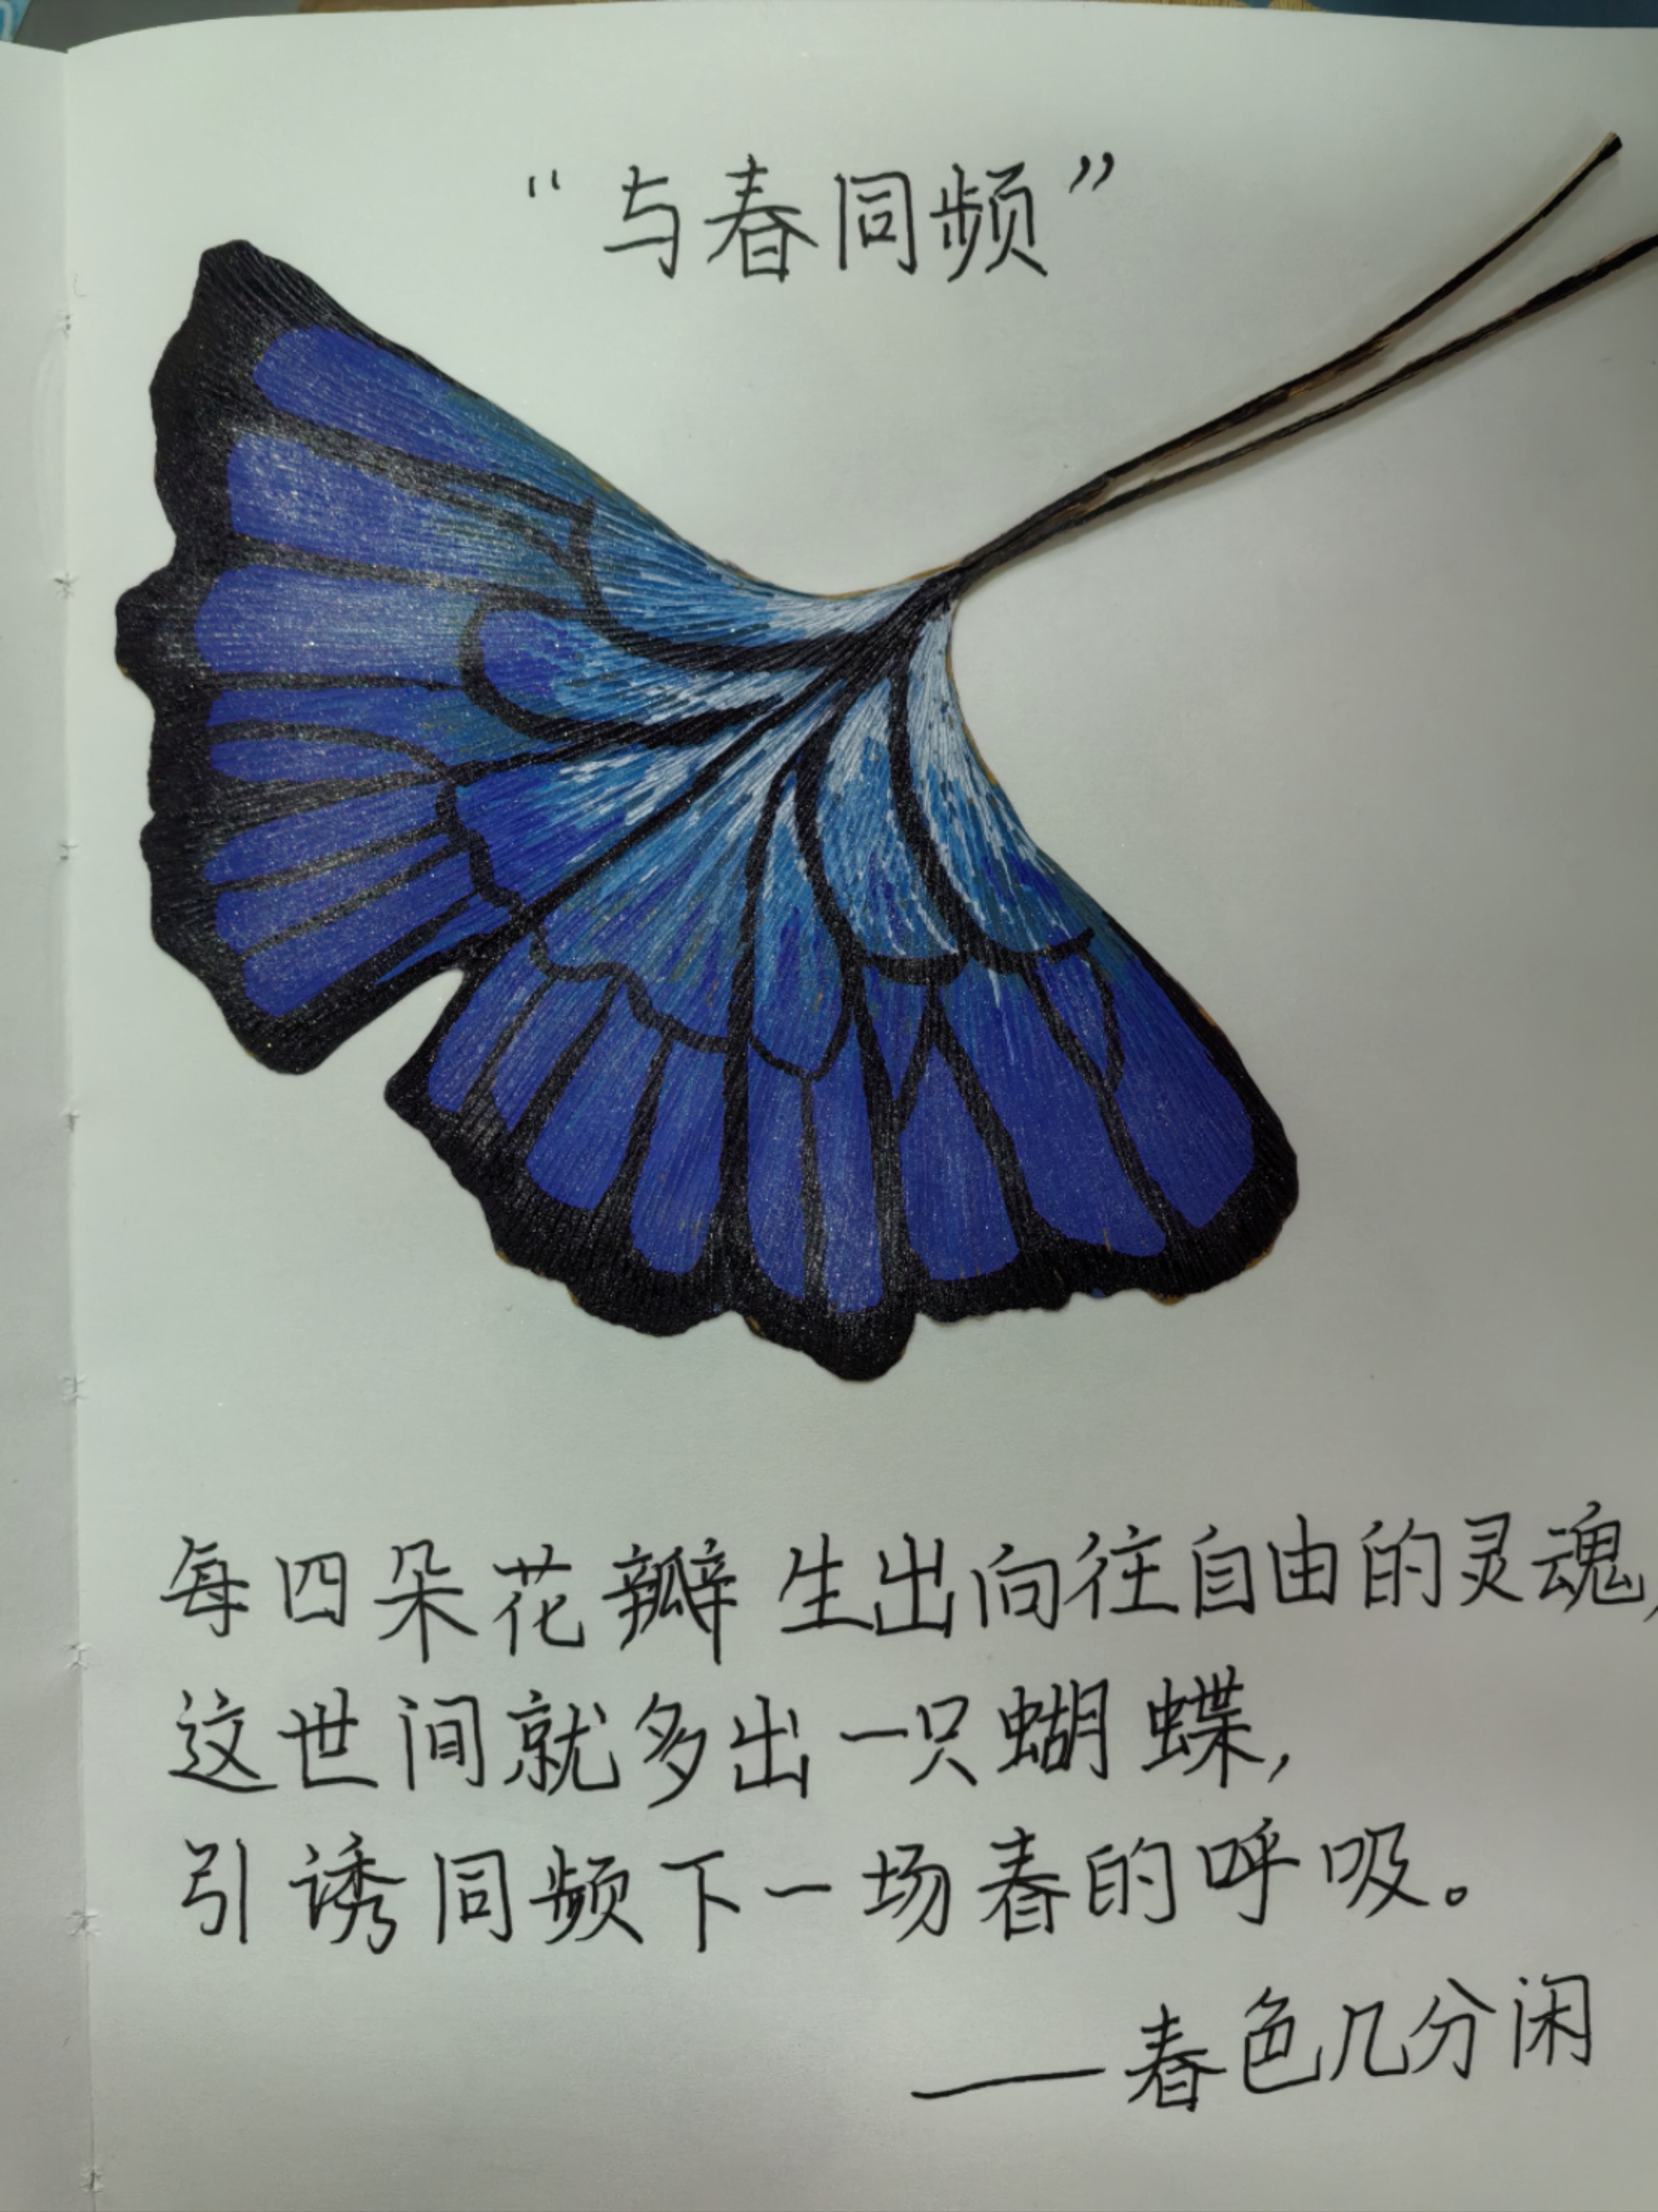 “与春同频”
每四朵花瓣生出向往自由的灵魂,
这世间就多出一只蝴蝶,
引诱同频下一场春的呼吸。
——春色几分闲